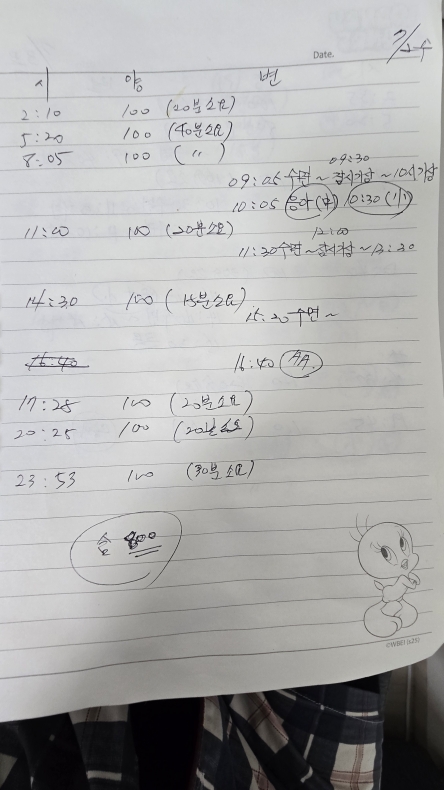 Date.
시 양 변
2:10 100 (20분소요)
5:20 100 (40분소요)
8:05 100 ( 〃 )
09:30
09:05 수면 ~ 잠시기상 ~ 10시기상
10:05 응아
11:00 100 (20분소요)
12:00
11:30 수면 ~ 잠시기상 ~ 13:30
14:30 100 (15분소요)
15:20 수면 ~
16:40 16:40
17:25 100 (20분소요)
20:25 100 (20분소요)
23:53 100 (30분소요)
800
©WBEI (s25)